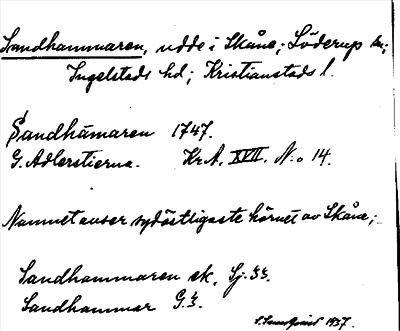 Sandhammaren, udde i Skåne; Löderup sn;
Ingelstads hd; Kristianstads l.
Sandhāmaren 1747.
G. Adlerstierna. Kr. A. XVII. N:o 14.
Namnet avser sydöstligaste hörnet av Skåne;
Sandhammaren ek. Sj.
Sandhammar G.
1937.